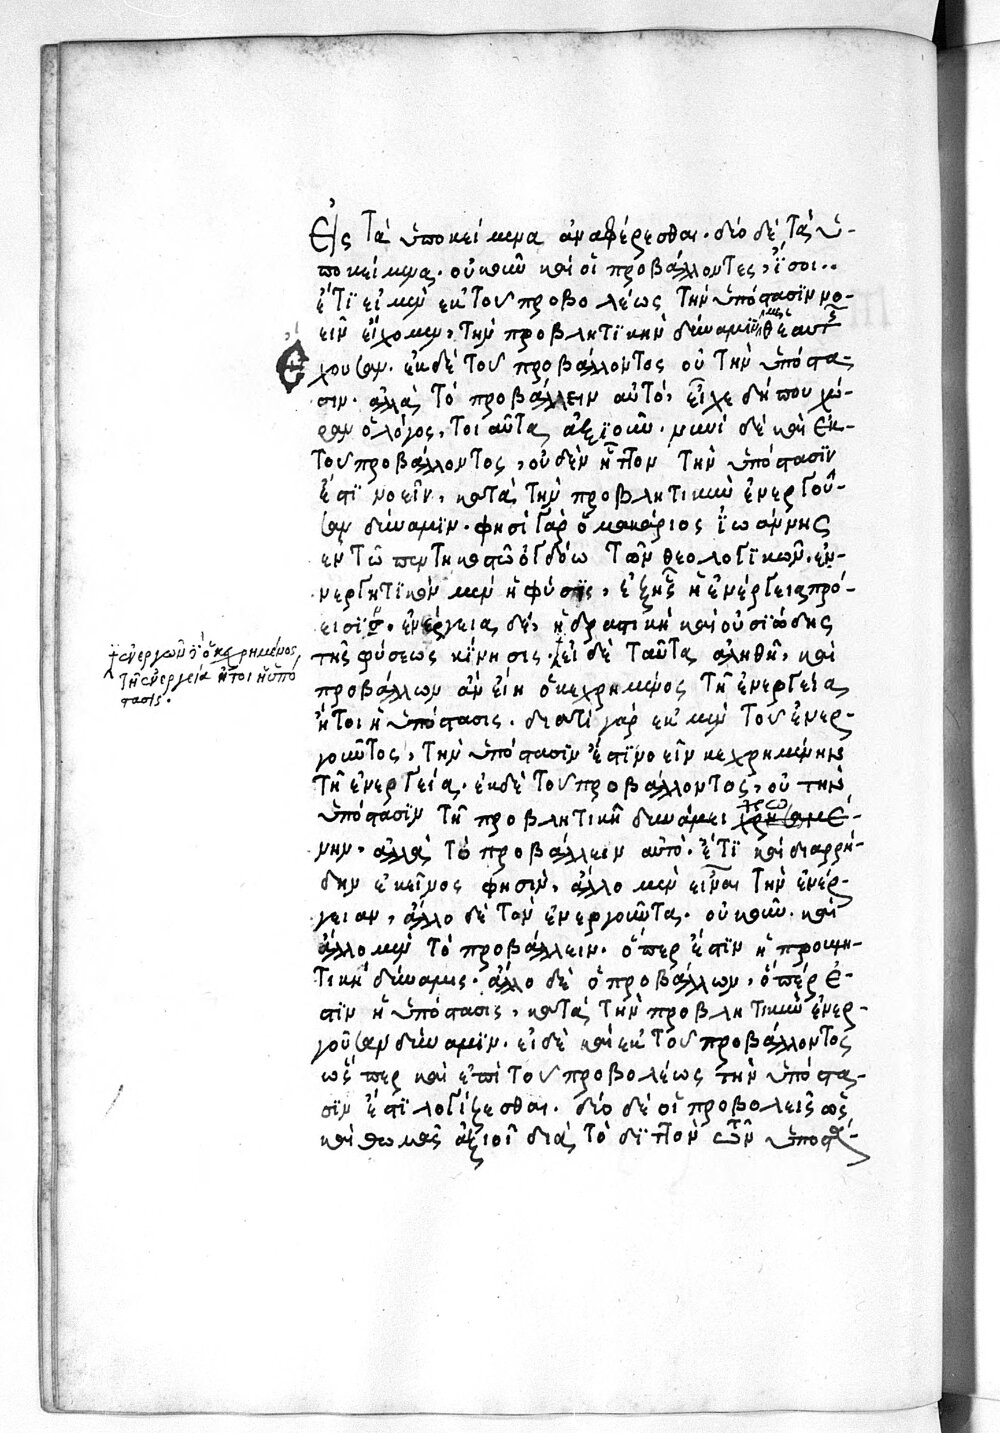 Εἰς τὰ ὑποκείμενα ἀναφέρεσθαι· δύο δὲ τὰ ὑ-
ποκείμενα· οὐκοῦν καὶ οἱ προβάλλοντες, ἴσοι..
ἔτϊ εἰ μὲν ἐκ τοῦ προβολέως τὴν ὑπόστασϊν νο-
εῖν εἴχομεν, τὴν προβλητϊκὴν δύναμϊν
έχουσαν· ἐκ δὲ τοῦ προβάλλοντος οὐ τὴν ὑπόστα-
σιν· ἀλλὰ τὸ προβάλλειν αὐτό, εἶχε δήπου χώ-
ραν ὁ λόγος, τοιαῦτα ἀξϊοῦν· νυνὶ δὲ καὶ ἐκ
τοῦ προβάλλοντος, οὐδὲν ἧττον τὴν ὑπόστασϊν
ἔστϊ νοεῖν, κατὰ τὴν προβλητικὴν ἐνεργοῦ-
σαν δύναμϊν· φησὶ γὰρ ὁ μακάριος ϊωάννης
ἐν τῶ πεντηκοστῶ ὀγδόω τῶν θεολογϊκῶν, ἐ-
νεργητϊκὸν μὲν ἡ φύσϊς, ἐξ ἧς ἡ ἐνέργεια πρό-
εισϊ, ἐνέργεια δέ, ἡ δραστικὴ καὶ οὐσϊώδης
τῆς φύσεως κίνησις· εἰ δὲ ταῦτα ἀληθῆ, καὶ
προβάλλων ἂν εἴη ὁ κεχρημένος τῆ ἐνεργεία
ἤτοι ἡ ὑπόστασις· διατί γὰρ ἐκ μὲν τοῦ ἐνερ-
γοῦντος, τὴν ὑπόστασϊν ἔστϊ νοεῖν κεχρημένην
τῆ ἐνεργεία· ἐκ δὲ τοῦ προβάλλοντος, οὐ τὴν
ὑπόστασϊν τῆ προβλητικῆ δυνάμει χρωμέ-
νην, ἀλλὰ τὸ προβάλλειν αὐτό· ἔτϊ καὶ διαρρή-
δην ἐκεῖνος φησὶν, ἄλλο μὲν εἶναι τὴν ἐνέρ-
γειαν, ἄλλο δὲ τὸν ἐνεργοῦντα· οὐκοῦν· καὶ
ἄλλο μὲν τὸ προβάλλειν· ὅπερ ἐστὶν ἡ
τικὴ δύναμις· ἄλλο δὲ ὁ προβάλλων, ὅπέρ ἐ-
στϊν ἡ ὑπόστασις, κατὰ τὴν προβλητικὴν ἐνερ-
γοῦσαν δύναμϊν· εἰ δὲ καὶ ἐκ τοῦ προβάλλοντος
ὥσπερ καὶ ἐπὶ τοῦ προβολέως τὴν ὑπόστα-
σϊν ἔστϊ λογίζεσθαι· δύο δὲ οἱ προβολεῖς ὡς
καὶ θωμᾶς ἀξιοῖ διὰ τὸ δϊττὸν τῶν ὑποστ-
ἐνεργῶν δὲ ὁ κεχρημένος,
τῆ ἐνεργεία ἤτοι ἡ ὑπό
στασις·